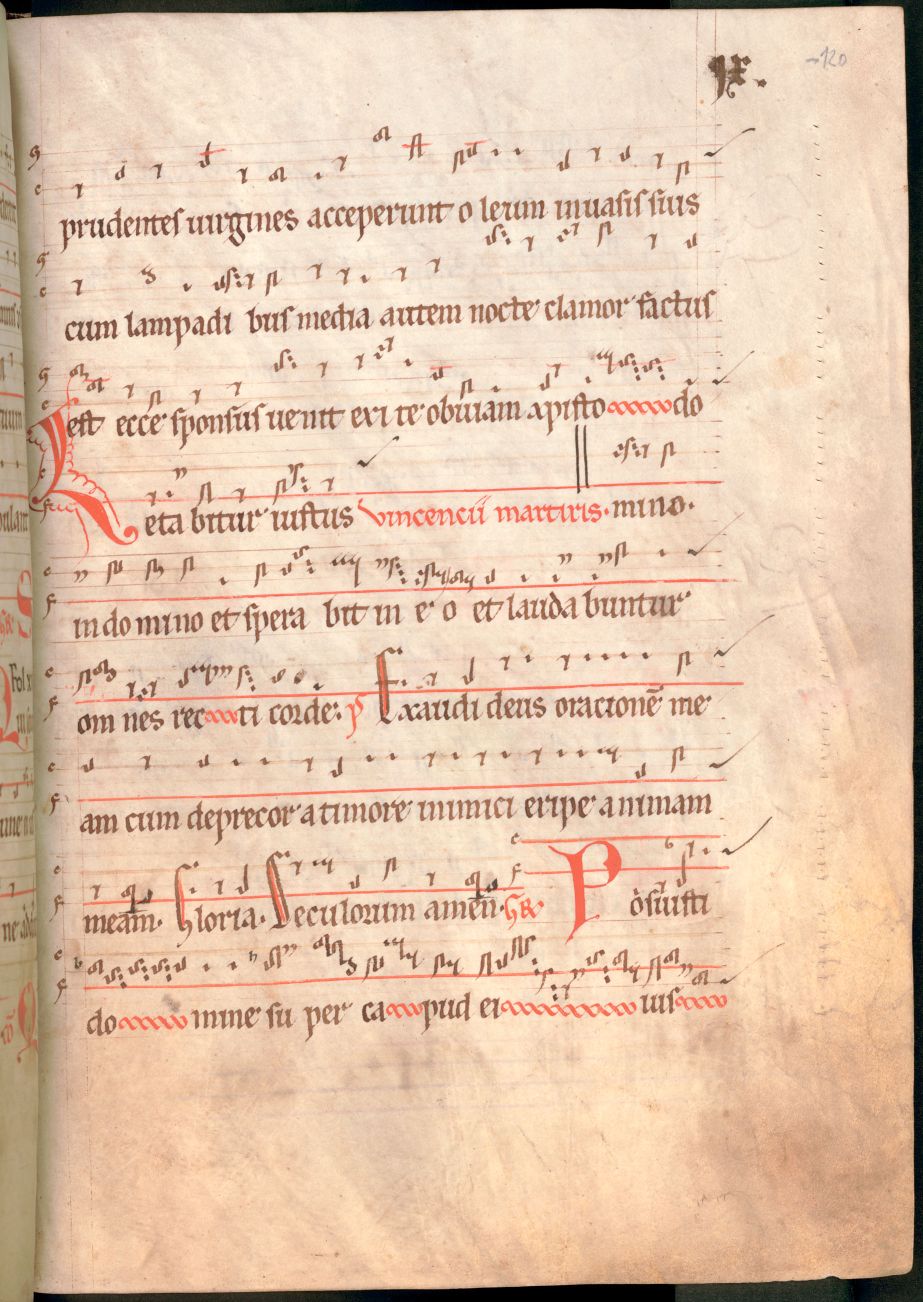 ıx.
120
prudentes uirgines acceperunt oleum inuasis suis
cum lampadibus media autem nocte clamor factus
est ecce sponsus uenit exite obuiam xpisto do
Letabitur iustus vincencii martiris. mino.
in domino et sperabit in eo et laudabuntur
omnes recti corde. ps Exaudi deus orationē me
am cum deprecor a timore inimici eripe animam
meam. Gloria. Seculorum amen. Posuisti
domine super capud eius